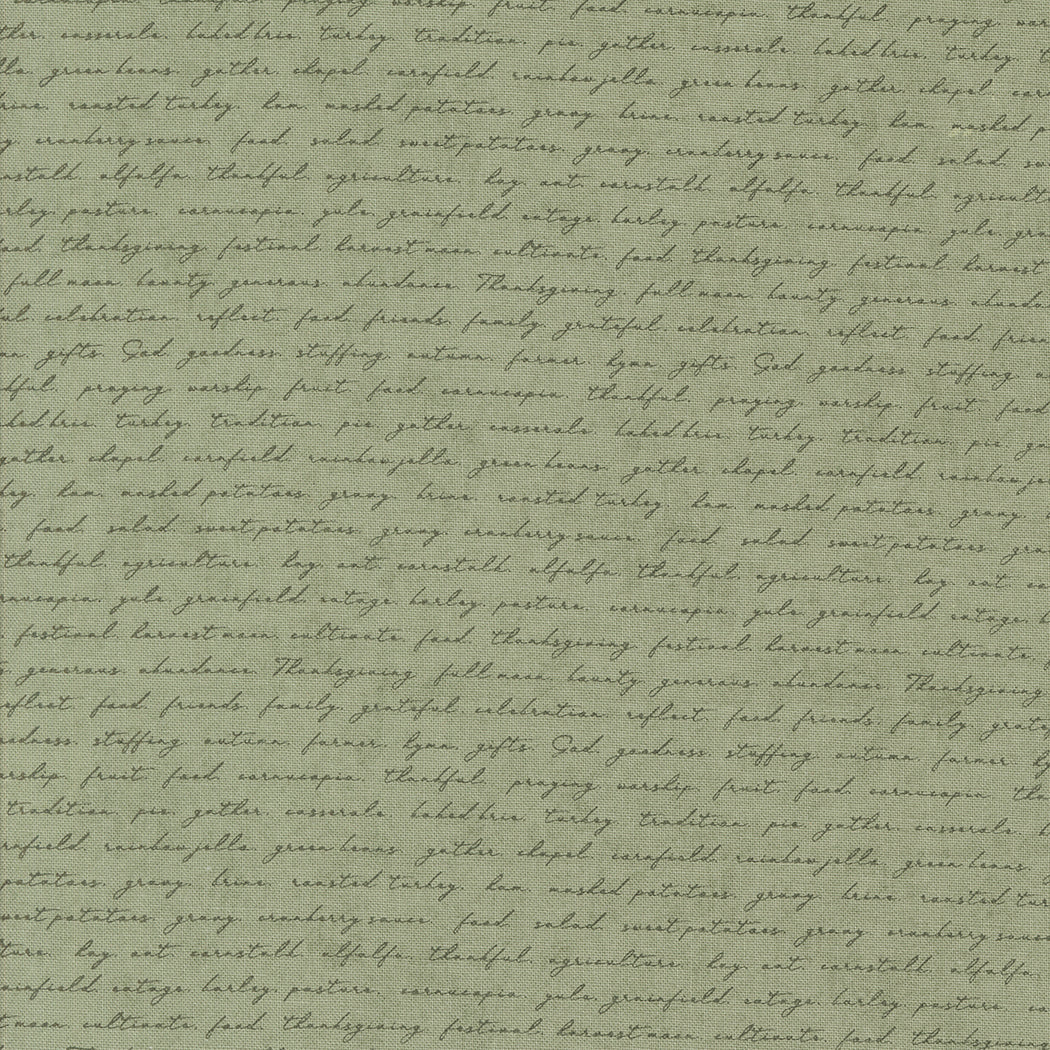 cornucopia. thankful. praying. worship. fruit. food. cornucopia. thankful. praying.
casserole. baked brie. turkey. tradition. pie. gather. casserole. baked brie. turkey.
green beans. gather. chapel. cornfield. rainbow jello. green beans. gather. chapel.
brine. roasted turkey. ham. mashed potatoes. gravy. brine. roasted turkey. ham. mashed
cranberry sauce. food. salad. sweet potatoes. gravy. cranberry sauce. food. salad.
alfalfa. thankful. agriculture. hay. oat. cornstalk. alfalfa. thankful.
pasture. cornucopia. yule. grainfield. cotage. barley. pasture. cornucopia. yule.
food. thanksgiving. festival. harvest moon. cultivate. food. thanksgiving. festival. harvest
full moon. bounty. generous. abundance. Thanksgiving. full moon. bounty. generous.
celebration. reflect. food. friends. family. grateful. celebration. reflect. food.
gifts. God. goodness. stuffing. autumn. farmer. hymn. gifts. God. goodness. stuffing.
praying. worship. fruit. food. cornucopia. thankful. praying. worship. fruit. food
brie. turkey. tradition. pie. gather. casserole. baked brie. turkey. tradition. pie.
gather. chapel. cornfield. rainbow jello. green beans. gather. chapel. cornfield. rainbow
ham. mashed potatoes. gravy. brine. roasted turkey. ham. mashed potatoes. gravy.
food. salad. sweet potatoes. gravy. cranberry sauce. food. salad. sweet potatoes.
thankful. agriculture. hay. oat. cornstalk. alfalfa. thankful. agriculture. hay. oat.
yule. grainfield. cotage. barley. pasture. cornucopia. yule. grainfield. cotage.
festival. harvest moon. cultivate. food. thanksgiving. festival. harvest moon. cultivate.
generous. abundance. Thanksgiving. full moon. bounty. generous. abundance. Thanksgiving
reflect. food. friends. family. grateful. celebration. reflect. food. friends. family.
stuffing. autumn. farmer. hymn. gifts. God. goodness. stuffing. autumn. farmer.
fruit. food. cornucopia. thankful. praying. worship. fruit. food. cornucopia.
tradition. pie. gather. casserole. baked brie. turkey. tradition. pie. gather. casserole.
rainbow jello. green beans. gather. chapel. cornfield. rainbow jello. green beans.
potatoes. gravy. brine. roasted turkey. ham. mashed potatoes. gravy. brine. roasted
sweet potatoes. gravy. cranberry sauce. food. salad. sweet potatoes. gravy. cranberry sauce
hay. oat. cornstalk. alfalfa. thankful. agriculture. hay. oat. cornstalk. alfalfa.
cotage. barley. pasture. cornucopia. yule. grainfield. cotage. barley. pasture.
moon. cultivate. food. thanksgiving. festival. harvest moon. cultivate. food. thanksgiving